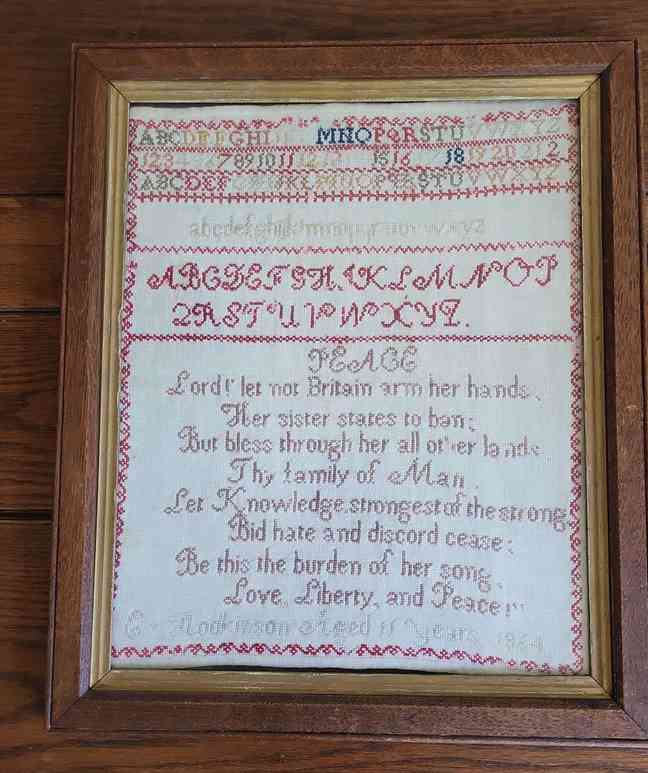 ABCDEFGHI MNOPQRSTU VWXYZ
1234 6 7 8 9 10 11 12 13 15 16 18 19 20 21 2
ABCDEFGHIJKLMNOPQRSTUVWXYZ
abcdefghijklmnopqrstuvwxyz
ABCDEFGHIKLMNOP
QRSTUVWXYZ.
PEACE
Lord! let not Britain arm her hands,
Her sister states to ban;
But bless through her all other lands
Thy family of Man.
Let Knowledge, strongest of the strong,
Bid hate and discord cease;
Be this the burden of her song,
Love, Liberty, and Peace!"
E Hodkinson Aged 11 Years 1864